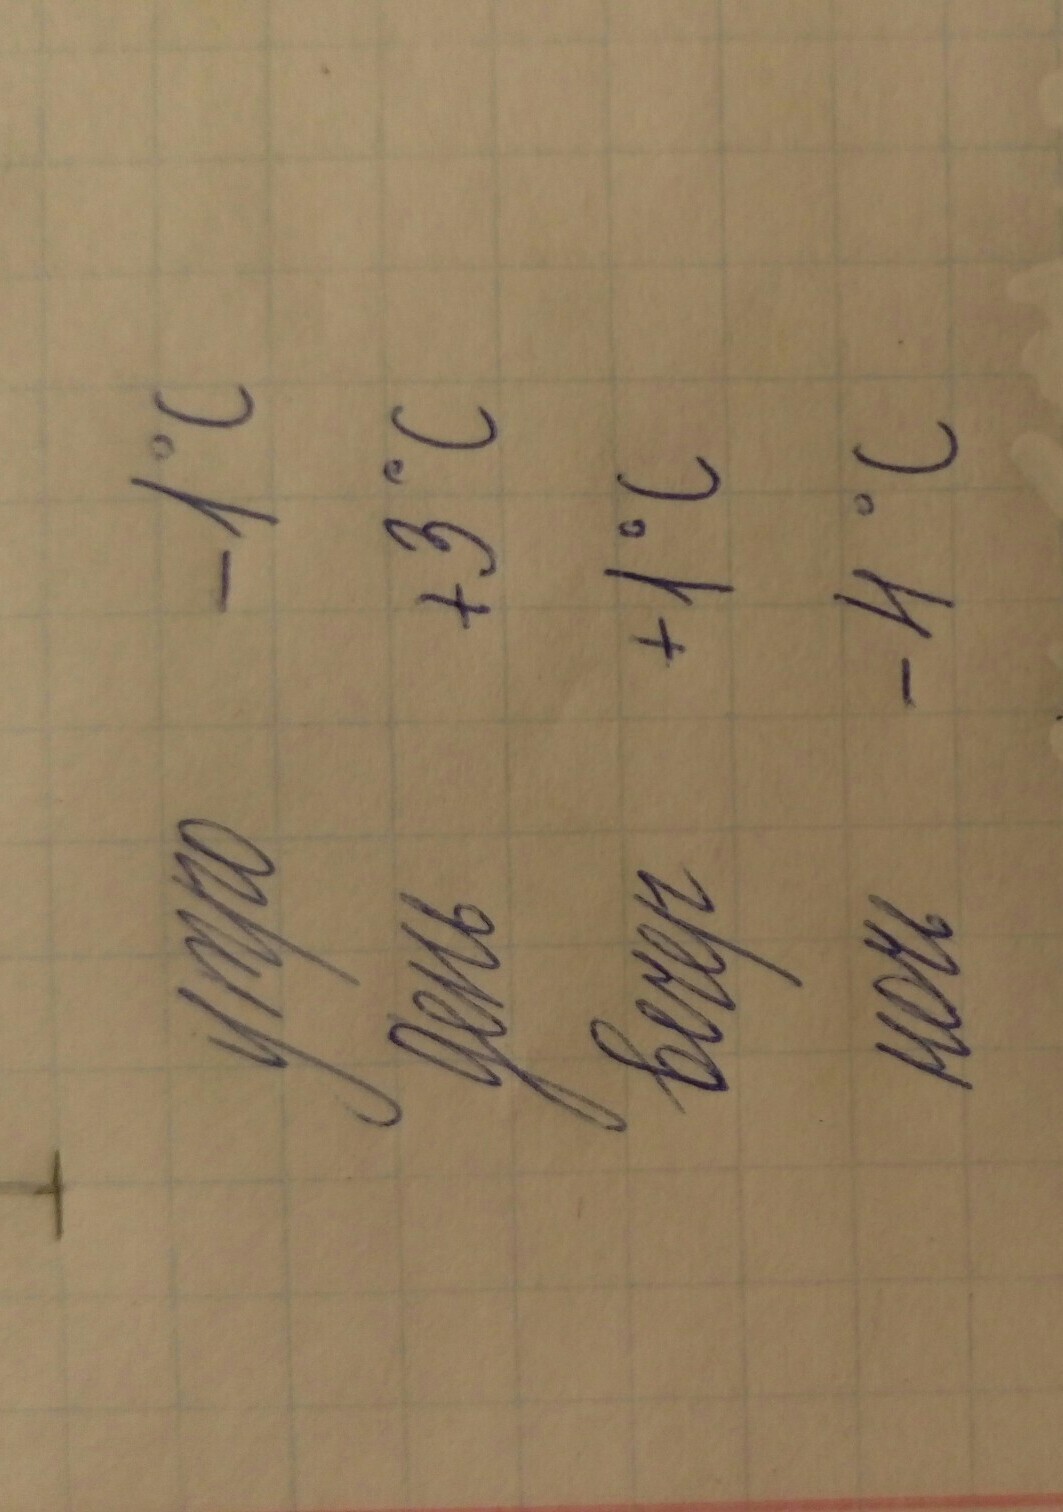 утро -1°C
день +3°C
вечер +1°C
ночь -4°C